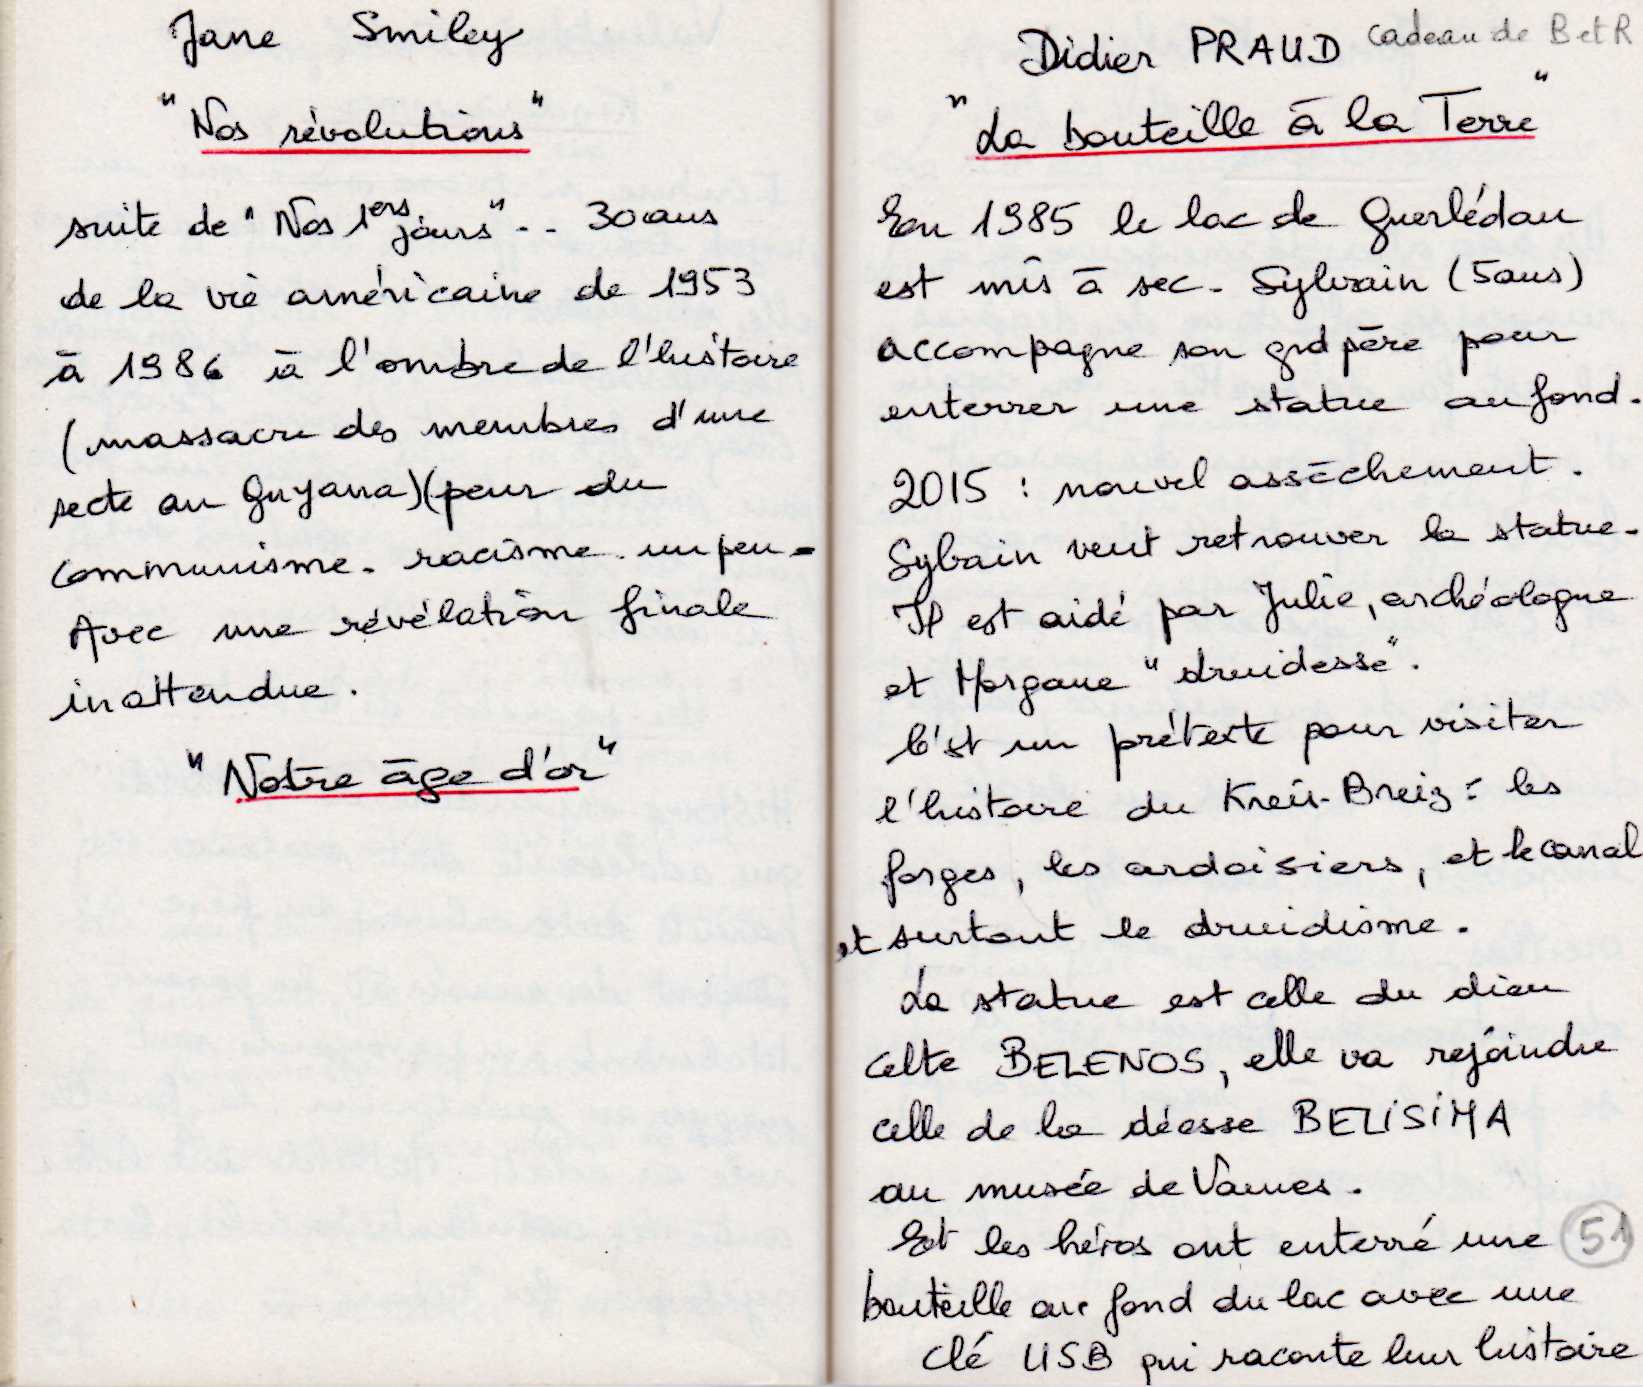 Jane Smiley
"Nos révolutions"
suite de "Nos 1ers jours".. 30 ans
de la vie américaine de 1953
à 1986 à l'ombre de l'histoire
(massacre des membres d'une
secte au Guyana)(peur du
communisme. racisme. un peu-
Avec une révélation finale
inattendue.
"Notre âge d'or"
Didier PRAUD cadeau de B et R
"La bouteille à la Terre"
En 1985 le lac de Guerlédan
est mis à sec. Sylvain (5ans)
accompagne son grd père pour
enterrer une statue au fond.
2015 : nouvel assèchement.
Sylvain veut retrouver la statue.
Il est aidé par Julie, archéologue
et Morgane "druidesse".
C'st un prétexte pour visiter
l'histoire du Kreiz-Breiz : les
forges, les ardoisiers, et le canal
et surtout le druidisme.
La statue est celle du dieu
celte BELENOS, elle va rejoindre
celle de la déesse BELISIMA
au musée de Vannes.
Et les héros ont enterré une
51
bouteille au fond du lac avec une
clé USB qui raconte leur histoire